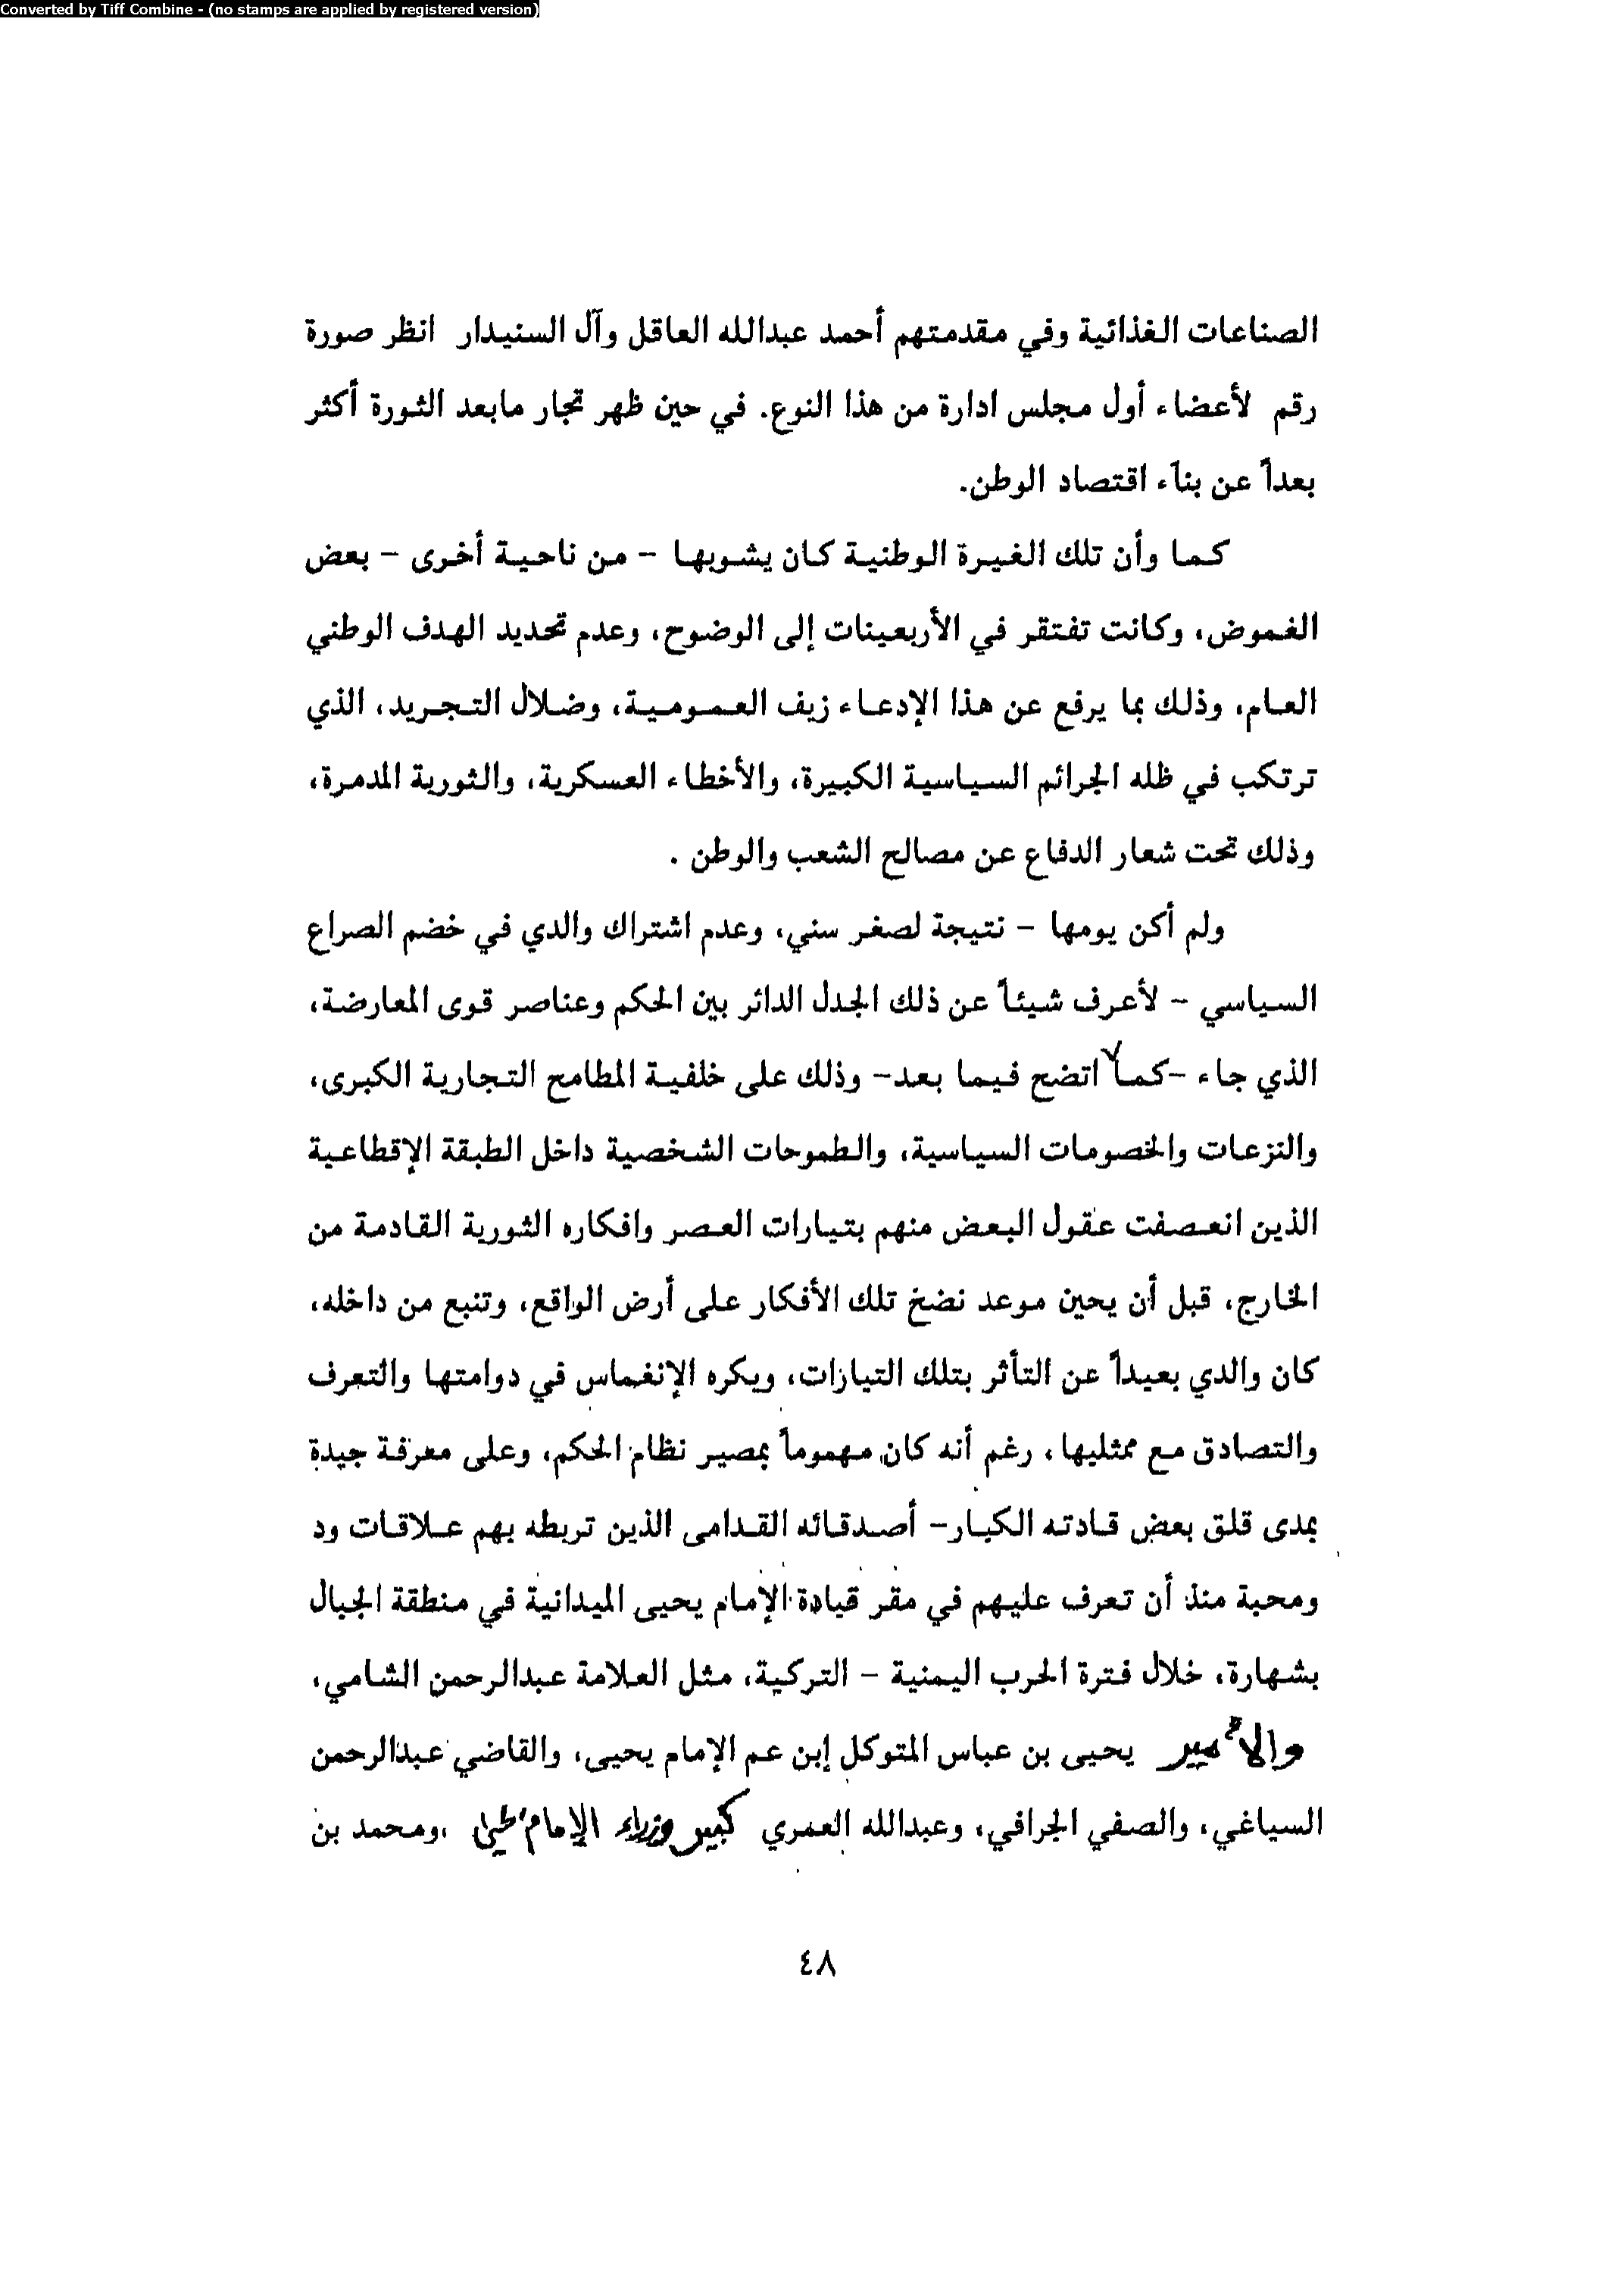 Converted by Tiff Combine - (no stamps are applied by registered version)
الصناعات الغذائية وفي مقدمتهم أحمد عبدالله العاقل وآل السنيدار انظر صورة
رقم لأعضاء أول مجلس ادارة من هذا النوع. في حين ظهر تجار مابعد الثورة أكثر
بعداً عن بناء اقتصاد الوطن.
كما وأن تلك الغيرة الوطنية كان يشوبها - من ناحية أخرى - بعض
الغموض، وكانت تفتقر في الأربعينات إلى الوضوح، وعدم تحديد الهدف الوطني
العام، وذلك بما يرفع عن هذا الإدعاء زيف العمومية، وضلال التجريد، الذي
ترتكب في ظله الجرائم السياسية الكبيرة، والأخطاء العسكرية، والثورية المدمرة،
وذلك تحت شعار الدفاع عن مصالح الشعب والوطن .
ولم أكن يومها - نتيجة لصغر سني، وعدم اشتراك والدي في خضم الصراع
السياسي - لأعرف شيئاً عن ذلك الجدل الدائر بين الحكم وعناصر قوى المعارضة،
الذي جاء -كما اتضح فيما بعد- وذلك على خلفية المطامح التجارية الكبرى،
والنزعات والخصومات السياسية، والطموحات الشخصية داخل الطبقة الإقطاعية
الذين انعصفت عقول البعض منهم بتيارات العصر وافكاره الثورية القادمة من
الخارج، قبل أن يحين موعد نضخ تلك الأفكار على أرض الواقع، وتنبع من داخله،
كان والدي بعيداً عن التأثر بتلك التيارات، ويكره الإنغماس في دوامتها والتعرف
والتصادق مع ممثليها، رغم أنه كان مهموماً بمصير نظام الحكم، وعلى معرفة جيدة
بمدى قلق بعض قادته الكبار- أصدقائه القدامى الذين تربطه بهم علاقات ود
ومحبة منذ أن تعرف عليهم في مقر قيادة الإمام يحيى الميدانية في منطقة الجبال
بشهارة، خلال فترة الحرب اليمنية - التركية، مثل العلامة عبدالرحمن الشامي،
والأمير يحيى بن عباس المتوكل إبن عم الإمام يحيى، والقاضي عبدالرحمن
السياغي، والصفي الجرافي، وعبدالله العمري كبير وزراء الإمام يحيى ،ومحمد بن
٤٨